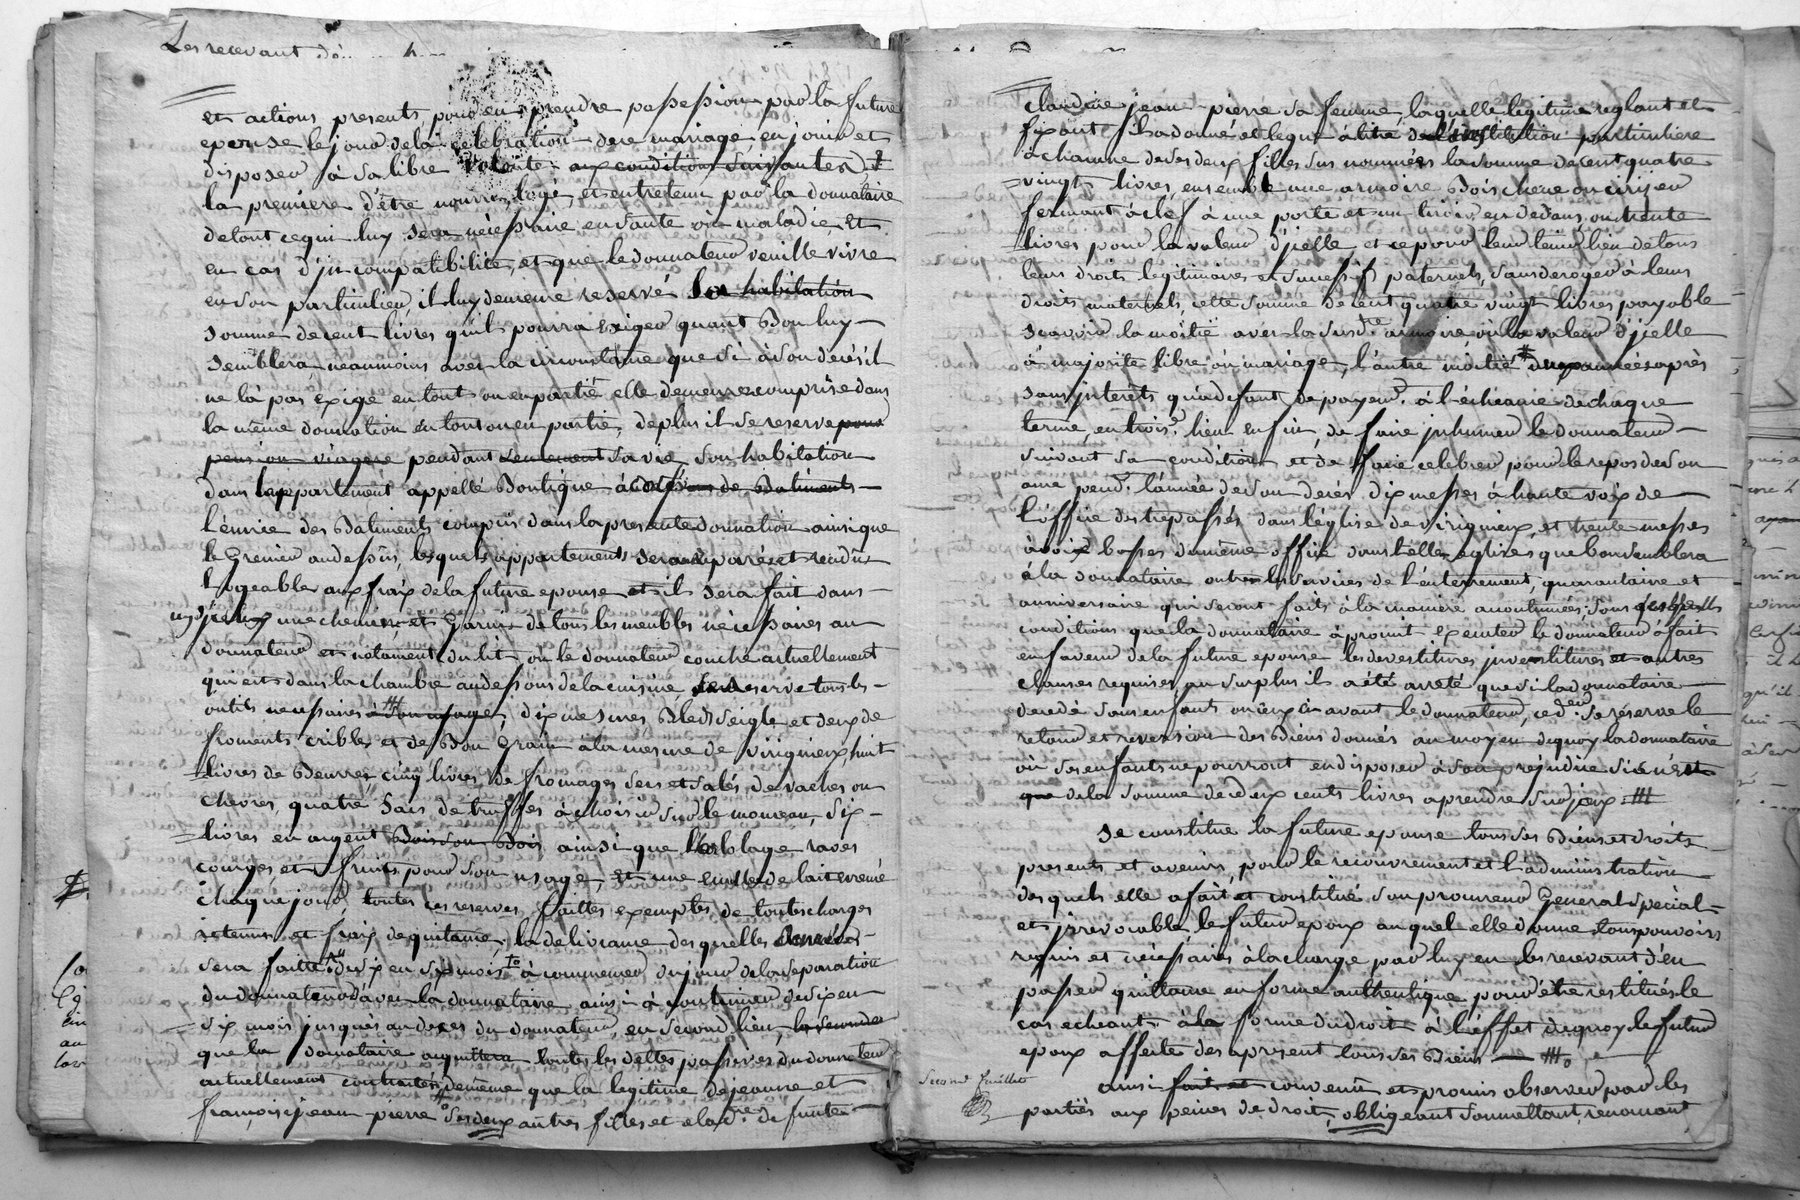 Les recevant d'en
et actions presents, pour en prendre possession par la future
epouse le jour de la celebration de ce mariage, en jouir et
disposer à sa libre volonté aux conditions suivantes
la premiere d'être nourri, logé, et entretenu par la donnataire
de tout ce qui luy sera nécéssaire en santé ou maladie, et
en cas d'jncompatibilité, et que le donnateur veuille vivre
en son particulier, il luy demeure reservé habitation
somme de cent livres qu'il pourra exiger quant bon luy
semblera, neanmoins avec la circonstance que si à son decés il
ne là pas exigé en tout ou en partie elle demeure comprise dans
la même donnation en tout ou en partie, de plus il se reserve pour
pension viagere pendant seulement sa vie, son habitation
dans lappartement appellé Boutique de Batiments
des Batiments compris dans la presente donnation ainsi que
le Grenier au dessus, lesquels appartements seront parés et rendus
logeables aux fraix de la future epouse et il sera fait dans
une cheminée et Garni de tous les meubles nécéssaires au
donnateur et notament du lit ou le donnateur couche actuellement
qui est dans la chambre au dessous de la cuisine se reserve tous les
outils necessaires à son usage, dix mesures Bled Seigle et deux de
froments criblés et de Bon Grain à la mesure de Virignieux, huit
livres de Beurre, cinq livres de fromages secs et salés, de vaches ou
chevres, quatre sacs de truffes à choisir sur le monceau, dix
livres en argent Bois son Bois, ainsi que l'erbolage raves
courges et fruits pour son usage, et une de lait ecremé
chaque jour, toutes ces reserves faittes exemptes de toutes charges
retenues et fraix de quitance, la delivrance des quelles
sera faitte de six en six mois à commencer du jour de la separation
du donnateur d'avec la donnataire ainsi à continuer de six en
six mois jusques au deces du donnateur, en second lieu, la seconde
que la donnataire acquittera toutes les dettes passives du donnateur
actuellement contractées, de meme que la legitime de jeanne et
françoise jean-pierre ses deux autres filles et de
claudine jean-pierre sa femme, la quelle legitime reglant et
fixant il a donné et legue à titre d'institution particuliere
à chacune de ses deux filles sus nommées la somme de cent quatre
vingt livres, ensemble une armoire Bois chene ou cirijer
fermant à clef à une porte et un tiroir en dedans, ou trente
livres pour la valeur d'jcelle et ce pour leur tenir lieu de tous
leurs droits legitimaires et successifs paternels, sans deroger à leurs
droits maternels, cette somme de cent quatre vingt livres payable
scavoir la moitié avec la susd armoire, ou la valeur d'jcelle
à majorité libre ou mariage, l'autre moitié années après
sans jnterets qu'à defaut de payer à l'écheance de chaque
terme, en trois.e lieu enfin, de faire jnhumer le donnateur
suivant sa condition et de faire celebrer pour le repos de son
ame pend.t l'année de son decés dix messes à haute voix de
l'office des trepassés dans l'église de Virignieux, et trente messes
à voix basses du même office dans telles eglises que bon semblera
à la donnataire outre les services de l'enterrement, quarantaine et
anniversaire qui seront faits à la maniere acoutumée, sous
conditions que la donnataire à promit executer le donnateur à fait
en faveur de la future epouse les devestitures jnvestitures et autres
clauses requises, au surplus il a été areté que si la donnataire
decedé sans enfants ou iceux avant le donnateur, se reserve le
retour et reversion des Biens donnés au moyen de quoy la donnataire
où ses enfants ne pourront en disposer à son prejudice si ce n'est
que de la somme de deux cents livres a prendre sur jceux
Se constitue la future epouse tous ses Biens et droits
presents et avenirs, pour le recouvrement et l'administration
des quels elle a fait et constitué son procureur General Special
et jrrevocable le futur epoux au quel elle donne tous pouvoirs
requis et nécéssaires à la charge par luy en les recevant d'en
passer quittance en forme authentique pour être restitués le
cas echeant à la forme du droit à l'éffet de quoy le futur
epoux affecte des apresent tous ses Biens
Second feuillet
ainsi fait et convenu et promis observer par les
parties aux peines de droit, obligeant soumettant, renoncant